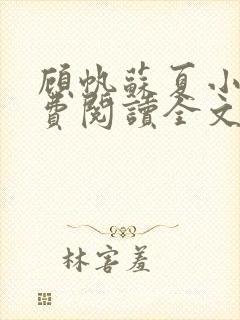 顾帆苏夏小
费阅读全文
林害羞